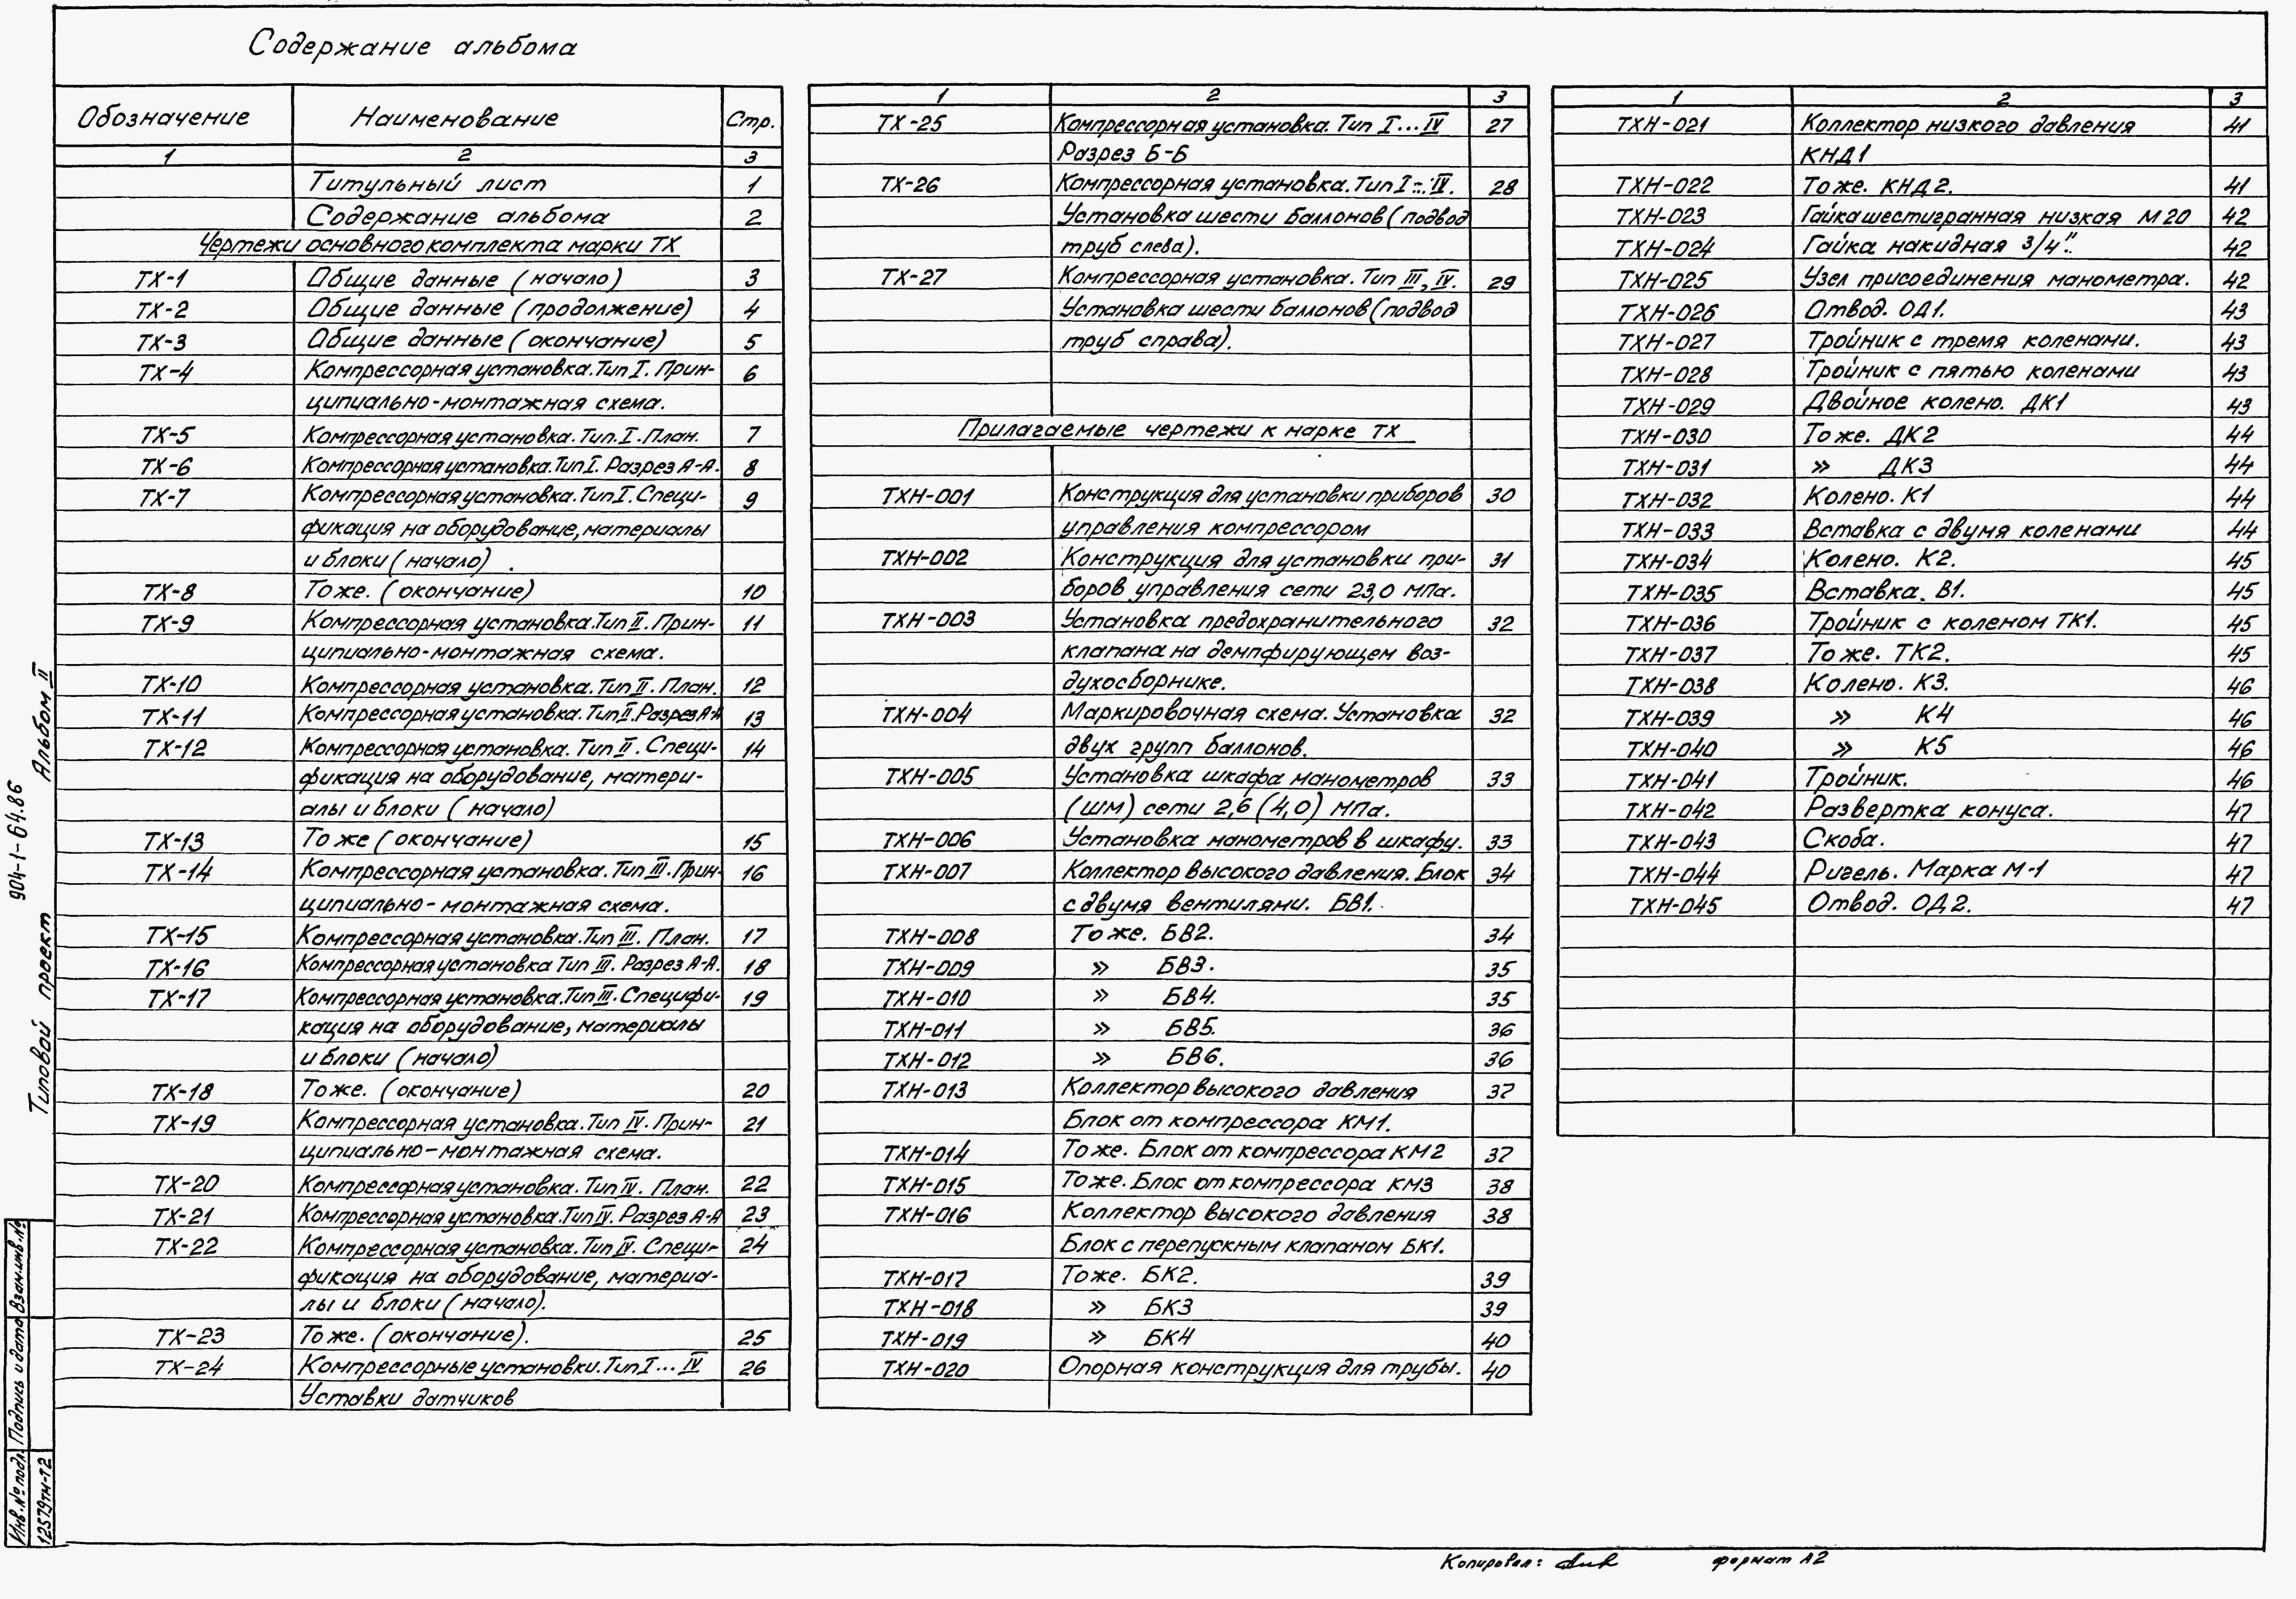 Содержание альбома
Обозначение Наименование Стр.
1 2 3
Титульный лист 1
Содержание альбома 2
Чертежи основного комплекта марки ТХ
ТХ-1 Общие данные (начало) 3
ТХ-2 Общие данные (продолжение) 4
ТХ-3 Общие данные (окончание) 5
ТХ-4 Компрессорная установка. Тип I. Прин- 6
ципиально-монтажная схема.
ТХ-5 Компрессорная установка. Тип. I. План. 7
ТХ-6 Компрессорная установка. Тип I. Разрез А-А. 8
ТХ-7 Компрессорная установка. Тип I. Специ- 9
фикация на оборудование, материалы
и блоки (начало).
ТХ-8 То же. (окончание) 10
ТХ-9 Компрессорная установка. Тип II. Прин- 11
ципиально-монтажная схема.
ТХ-10 Компрессорная установка. Тип II. План. 12
ТХ-11 Компрессорная установка. Тип II. Разрез А-А 13
ТХ-12 Компрессорная установка. Тип II. Специ- 14
фикация на оборудование, матери-
алы и блоки (начало)
ТХ-13 То же (окончание) 15
ТХ-14 Компрессорная установка. Тип III. Прин- 16
ципиально-монтажная схема.
ТХ-15 Компрессорная установка. Тип III. План. 17
ТХ-16 Компрессорная установка Тип III. Разрез А-А. 18
ТХ-17 Компрессорная установка. Тип III. Специфи- 19
кация на оборудование, материалы
и блоки (начало)
ТХ-18 То же. (окончание) 20
ТХ-19 Компрессорная установка. Тип IV. Прин- 21
ципиально-монтажная схема.
ТХ-20 Компрессорная установка. Тип IV. План. 22
ТХ-21 Компрессорная установка. Тип IV. Разрез А-А 23
ТХ-22 Компрессорная установка. Тип IV. Специ- 24
фикация на оборудование, материа-
лы и блоки (начало).
ТХ-23 То же. (окончание). 25
ТХ-24 Компрессорные установки. Тип I...IV 26
Уставки датчиков
1 2 3
ТХ-25 Компрессорная установка. Тип I...IV 27
Разрез Б-Б
ТХ-26 Компрессорная установка. Тип I...IV. 28
Установка шести баллонов (подвод
труб слева).
ТХ-27 Компрессорная установка. Тип III, IV. 29
Установка шести баллонов (подвод
труб справа).
Прилагаемые чертежи к марке ТХ
ТХН-001 Конструкция для установки приборов 30
управления компрессором
ТХН-002 Конструкция для установки при- 31
боров управления сети 23,0 МПа.
ТХН-003 Установка предохранительного 32
клапана на демпфирующем воз-
духосборнике.
ТХН-004 Маркировочная схема. Установка 32
двух групп баллонов.
ТХН-005 Установка шкафа манометров 33
(ШМ) сети 2,6 (4,0) МПа.
ТХН-006 Установка манометров в шкафу. 33
ТХН-007 Коллектор высокого давления. Блок 34
с двумя вентилями. БВ1.
ТХН-008 То же. БВ2. 34
ТХН-009 » БВ3. 35
ТХН-010 » БВ4. 35
ТХН-011 » БВ5. 36
ТХН-012 » БВ6. 36
ТХН-013 Коллектор высокого давления 37
Блок от компрессора КМ1.
ТХН-014 То же. Блок от компрессора КМ2 37
ТХН-015 То же. Блок от компрессора КМ3 38
ТХН-016 Коллектор высокого давления 38
Блок с перепускным клапаном БК1.
ТХН-017 То же. БК2. 39
ТХН-018 » БК3 39
ТХН-019 » БК4 40
ТХН-020 Опорная конструкция для трубы. 40
1 2 3
ТХН-021 Коллектор низкого давления 41
КНД1
ТХН-022 То же. КНД2. 41
ТХН-023 Гайка шестигранная низкая М20 42
ТХН-024 Гайка накидная 3/4". 42
ТХН-025 Узел присоединения манометра. 42
ТХН-026 Отвод. ОД1. 43
ТХН-027 Тройник с тремя коленами. 43
ТХН-028 Тройник с пятью коленами 43
ТХН-029 Двойное колено. ДК1 43
ТХН-030 То же. ДК2 44
ТХН-031 » ДК3 44
ТХН-032 Колено. К1 44
ТХН-033 Вставка с двумя коленами 44
ТХН-034 Колено. К2. 45
ТХН-035 Вставка. В1. 45
ТХН-036 Тройник с коленом ТК1. 45
ТХН-037 То же. ТК2. 45
ТХН-038 Колено. К3. 46
ТХН-039 » К4 46
ТХН-040 » К5 46
ТХН-041 Тройник. 46
ТХН-042 Развертка конуса. 47
ТХН-043 Скоба. 47
ТХН-044 Ригель. Марка М-1 47
ТХН-045 Отвод. ОД2. 47
Типовой проект 904-1-64.86 Альбом II
Инв.№ подл. Подпись и дата Взам.инв.№
12579тм-т2
Копировал: формат А2